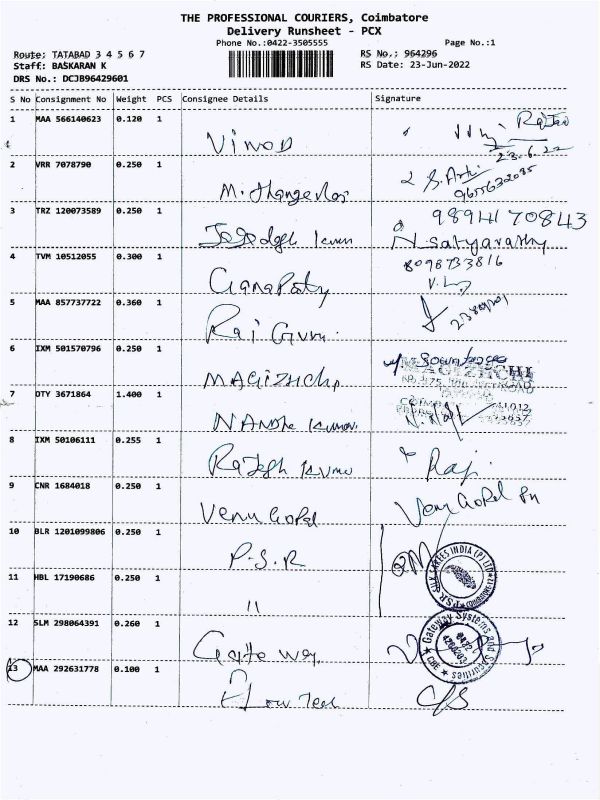 THE PROFESSIONAL COURIERS, Coimbatore
Delivery Runsheet - PCX
Phone No.:0422-3505555 Page No.:1
Route: TATABAD 3 4 5 6 7 RS No.: 964296
Staff: BASKARAN K RS Date: 23-Jun-2022
DRS No.: DCJB96429601
S No Consignment No Weight PCS Consignee Details Signature
1 MAA 566140623 0.120 1 Vinod
23.6.22
2 VRR 7078790 0.250 1
9655632085
3 TRZ 120073589 0.250 1 9894170843
N Satyavathy
4 TVM 10512055 0.300 1 Ganapathy 8098733816
5 MAA 857737722 0.360 1 Raj Guru
6 IXM 501570796 0.250 1 MAGIZHCHI MAGIZHCHI
7 OTY 3671864 1.400 1 NANDHA Kumar
8 IXM 50106111 0.255 1 Rajesh Kumar Raj
9 CNR 1684018 0.250 1 Venu Gopal Venu Gopal
10 BLR 1201099806 0.250 1 P.S.R
11 HBL 17190686 0.250 1 11 P.S.R SILK SAREES INDIA (P) LTD
12 SLM 298064391 0.260 1 Gateway Gateway Systems and Securities
CBE
13 MAA 292631778 0.100 1 Flow Tech